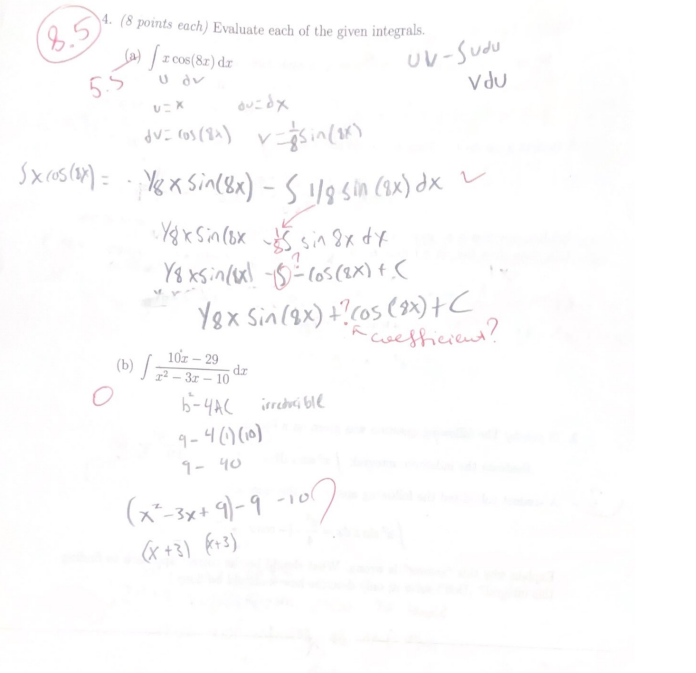 8.5
4. (8 points each) Evaluate each of the given integrals.
(a) ∫ x cos(8x) dx
5.5
uv - ∫udu
vdu
u dv
u = x du = dx
dv = cos(8x) v = 1/8 sin(8x)
∫x cos(8x) = 1/8 x sin(8x) - ∫ 1/8 sin(8x) dx ✓
1/8 x sin(8x - 1/8 ∫ sin 8x dx
1/8 x sin(8x) - ∫ ? - cos(8x) + C
1/8 x sin(8x) + ? cos(8x) + C
coefficient?
(b) ∫ 10x - 29 / x² - 3x - 10 dx
0
b² - 4AC irreducible
9 - 4(1)(10)
9 - 40
(x² - 3x + 9) - 9 - 10 ?
(x + 3) (x + 3)